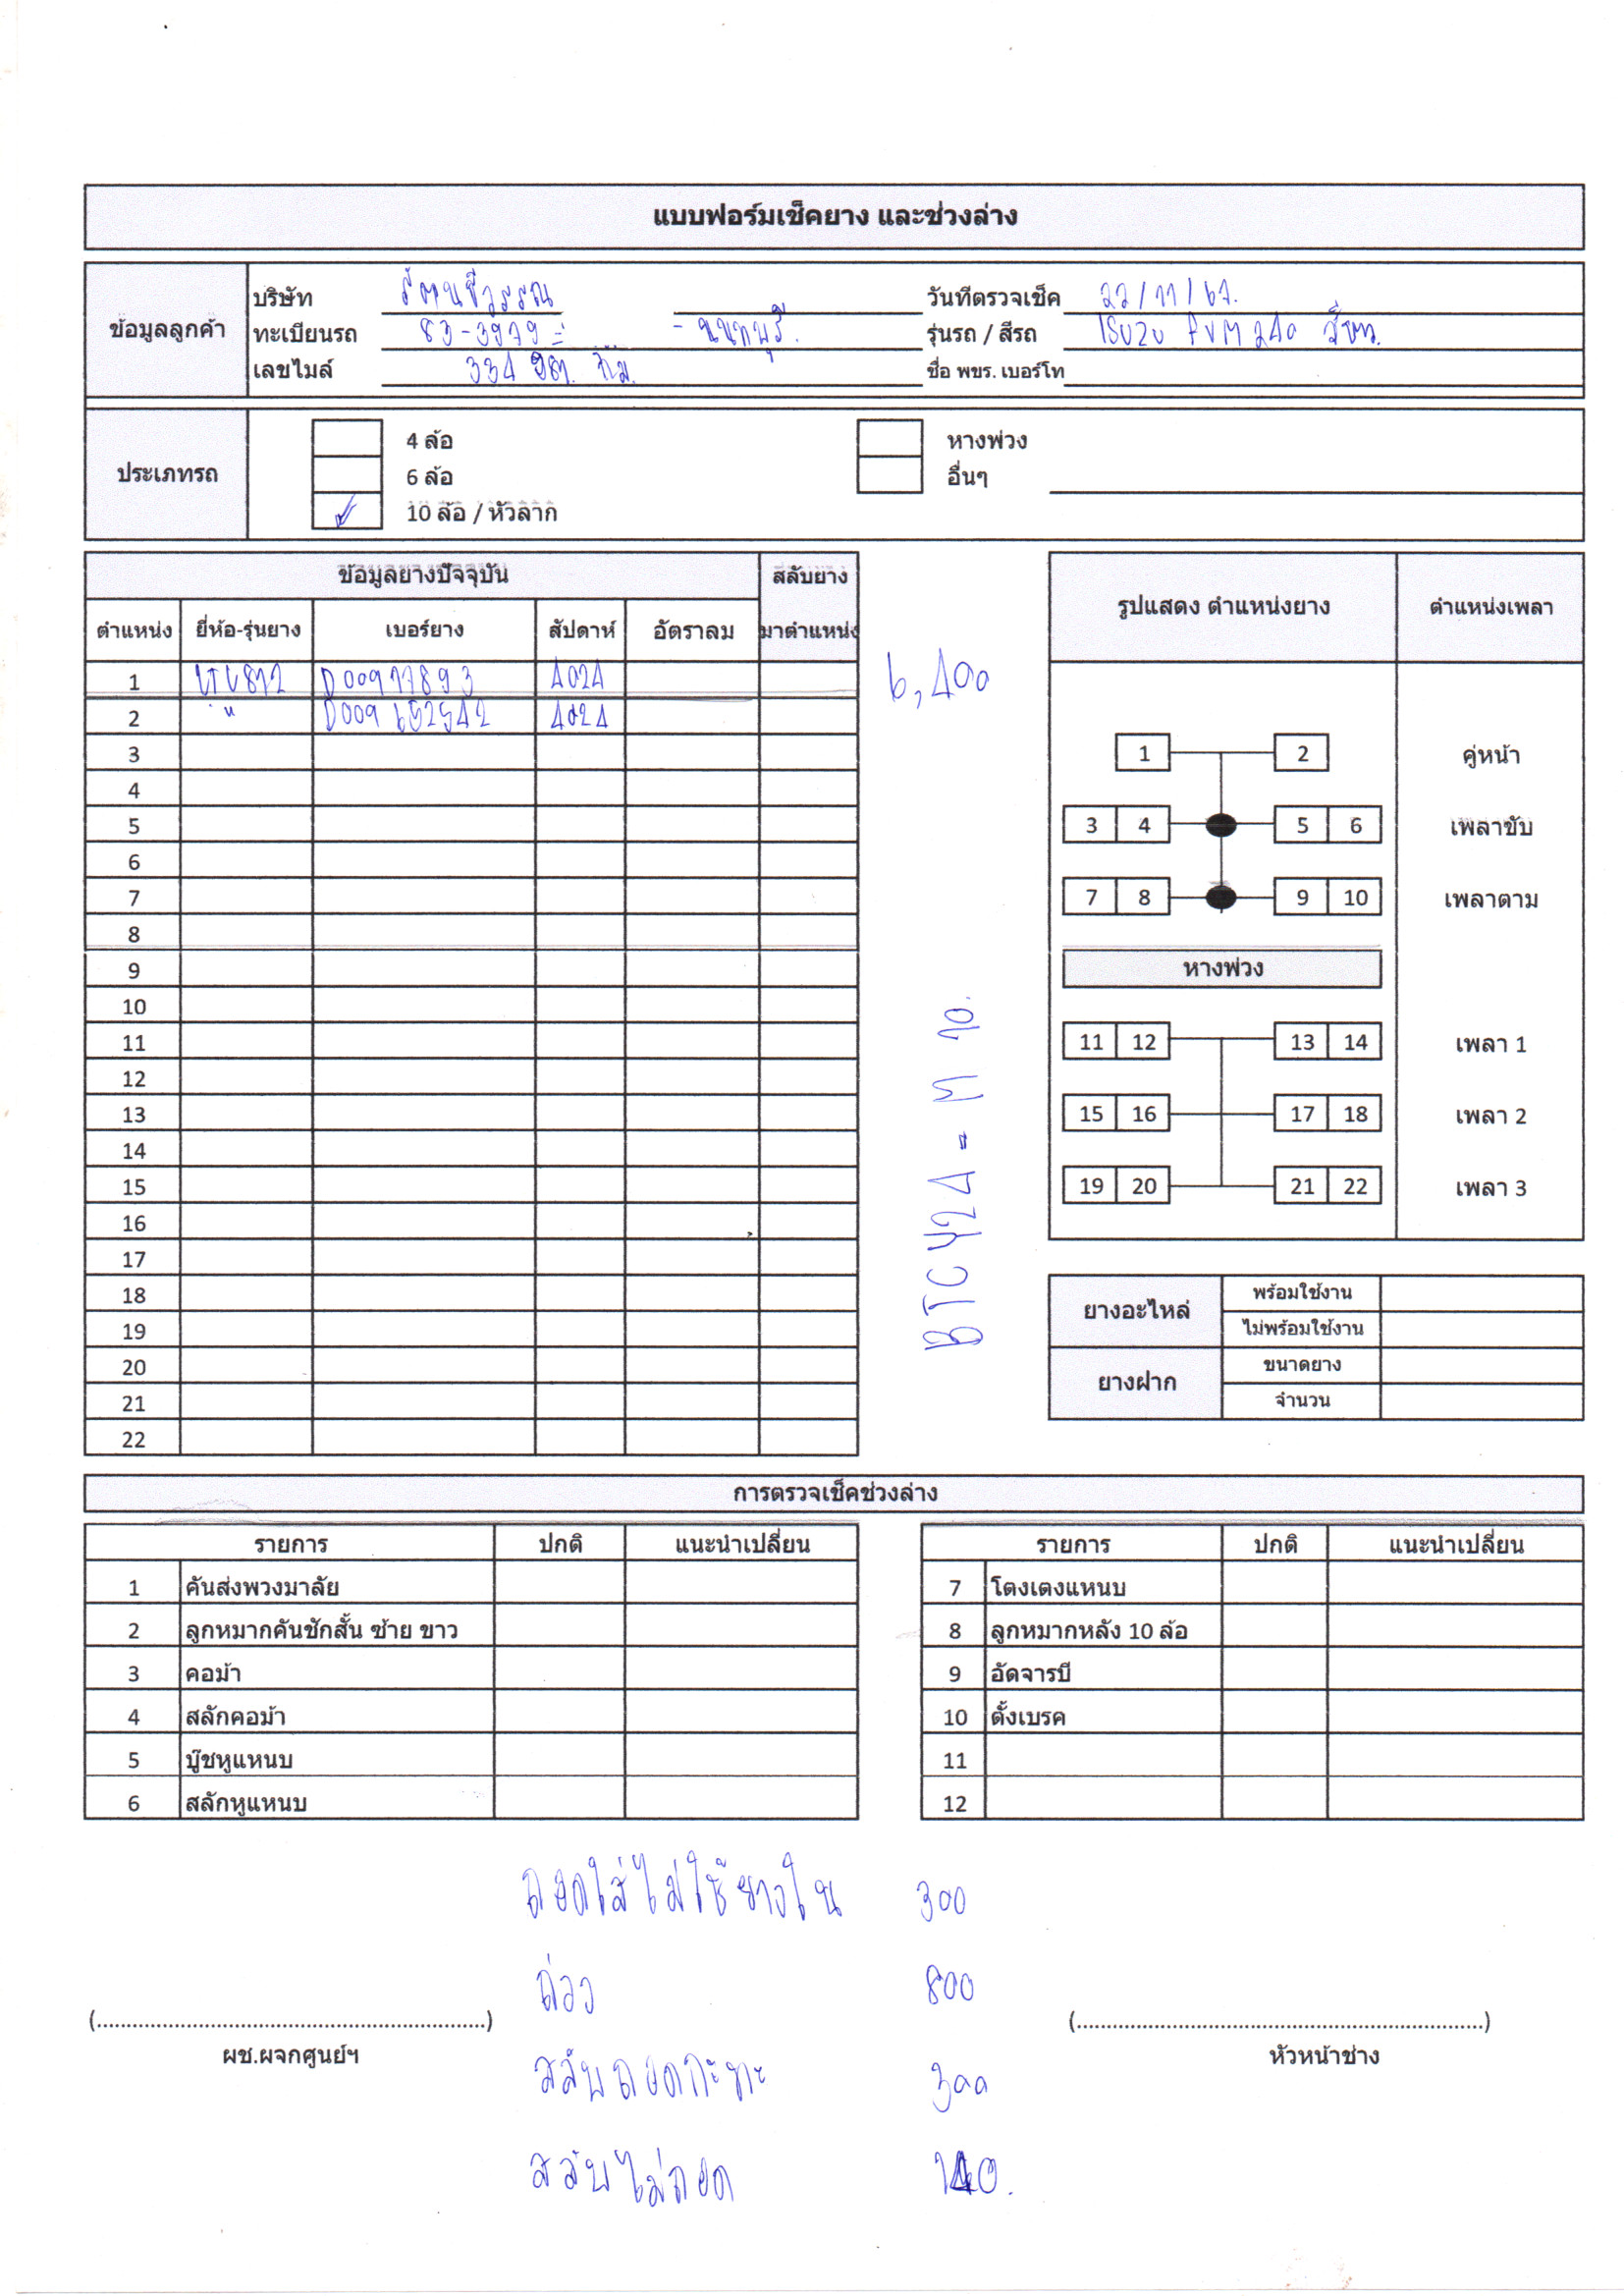 แบบฟอร์มเช็คยาง และช่วงล่าง
ข้อมูลลูกค้า
บริษัท รัตนชีวรรณ วันที่ตรวจเช็ค 22/11/67.
ทะเบียนรถ 83-3979 - นนทบุรี. รุ่นรถ / สีรถ ISUZU FVM 240
เลขไมล์ 334 กม. ชื่อ พขร. เบอร์โท
ประเภทรถ
4 ล้อ หางพ่วง
6 ล้อ อื่นๆ
✓ 10 ล้อ / หัวลาก
ข้อมูลยางปัจจุบัน สลับยาง
ตำแหน่ง ยี่ห้อ-รุ่นยาง เบอร์ยาง สัปดาห์ อัตราลม มาตำแหน่ง
1 D00977893 4024
2 " D009652542 4024
3
4
5
6
7
8
9
10
11
12
13
14
15
16
17
18
19
20
21
22
6,400
BTCY24-M 70.
รูปแสดง ตำแหน่งยาง ตำแหน่งเพลา
1 2 คู่หน้า
3 4 5 6 เพลาขับ
7 8 9 10 เพลาตาม
หางพ่วง
11 12 13 14 เพลา 1
15 16 17 18 เพลา 2
19 20 21 22 เพลา 3
ยางอะไหล่ พร้อมใช้งาน
ไม่พร้อมใช้งาน
ยางฝาก ขนาดยาง
จำนวน
การตรวจเช็คช่วงล่าง
รายการ ปกติ แนะนำเปลี่ยน
1 คันส่งพวงมาลัย
2 ลูกหมากคันชักสั้น ซ้าย ขาว
3 คอม้า
4 สลักคอม้า
5 บู๊ชหูแหนบ
6 สลักหูแหนบ
รายการ ปกติ แนะนำเปลี่ยน
7 โตงเตงแหนบ
8 ลูกหมากหลัง 10 ล้อ
9 อัดจารบี
10 ตั้งเบรค
11
12
ถอดใส่ไม่ใช้ยางใน 300
ถ่วง 800
สลับถอดกะทะ 300
สลับไม่ถอด 140.
(..................................................................)
ผช.ผจกศูนย์ฯ
(......................................................................)
หัวหน้าช่าง